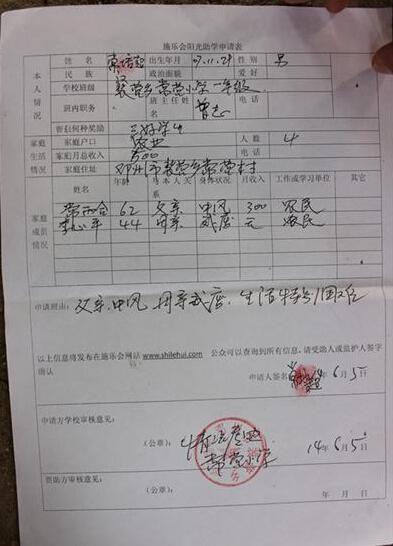 施乐会阳光助学申请表
本人情况
姓名 出生年月 07.11.29 性别 男
民族 政治面貌 爱好
学校班级 裴营乡常营小学一年级
班内职务 班主任姓名 曾志 电话
曾获何种奖励 三好学生
家庭生活情况
家庭户口 农业 人数 4
家庭月总收入 电话
家庭住址 邓州市裴营乡常营村
家庭成员情况
姓名 年龄 与本人关系 身体状况 月收入 工作或学习单位 其它
62 父亲 中风 300 农民
44 母亲 无 农民
申请理由: 父亲中风 母亲 生活特别困难
以上信息将发布在施乐会网站www.shilehui.com 公众可以查询到所有信息,请受助人或监护人签字
确认
申请人签名 年6月5日
申请方学校审核意见:
(公章): 14年6月5日
常营小学
资助方审核意见:
(公章): 年 月 日